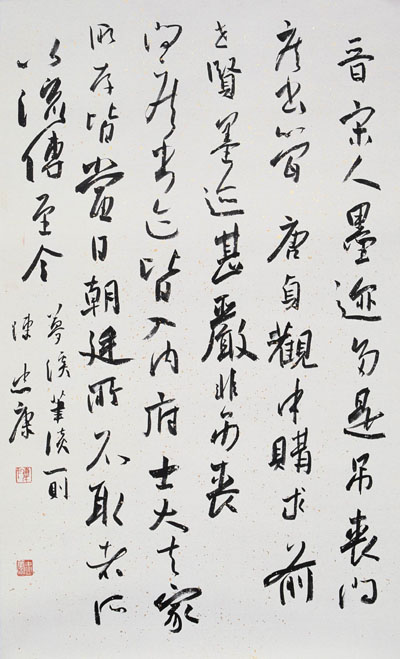 晉宋人墨迹多是吊喪問
疾書簡唐貞觀中購求前
世賢墨迹甚嚴非弔喪
問疾書迹皆入內府士大夫家
所存皆當日朝廷所不取者所
以流傳至今
夢溪筆談一則
陳忠康